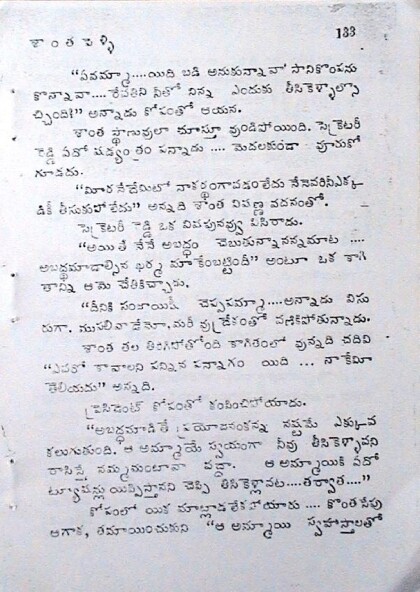 శాంత పెళ్ళి 133
"ఏవమ్మా....యిది బడి అనుకున్నావా సానికొంపను
కొన్నావా....రేవతిని నీతో నిన్న ఎందుకు తీసికెళ్ళాల్సొ
చ్చింది?" అన్నాడు కోపంతో ఆయన.
శాంత స్థాణువులా చూస్తూ వుండిపోయింది. సెక్రెటరీ
రెడ్డి ఏదో షడ్యంత్రం పన్నాడు .... మెదలకుండా వూరుకో
గూడదు.
"మీరనేదేమిటో నాకర్థంగావడంలేదు నేనెవరినిఎక్క
డికీ తీసుకుపోలేదు" అన్నది శాంత విషణ్ణ వదనంతో.
సెక్రెటరీ రెడ్డి ఒక విషపునవ్వు విసిరాడు.
"అయితే నేనే అబద్ధం చెబుతున్నానన్నమాట ....
అబద్ధమాడాల్సిన ఖర్మ మాకేంబట్టిందీ" అంటూ ఒక కాగి
తాన్ని ఆమె చేతికిచ్చాడు.
"దీనికి సంజాయిషీ చెప్పవమ్మా....అన్నాడు విసు
రుగా. ముసలివాడేమో, మరీ వుద్రేకంతో వణికిపోతున్నాడు.
శాంత తల తిరిగిపోతోంది కాగితంలో వున్నది చదివి
"ఎవరో కావాలని పన్నిన పన్నాగం యిది ... నాకేమీ
తెలియదు" అన్నది.
ప్రెసిడెంట్ కోపంతో కంపించిపోయాడు.
"అబద్ధమాడితే ప్రయోజనంకన్న నష్టమే ఎక్కువ
కలుగుతుంది. ఆ అమ్మాయే స్వయంగా నీవు తీసికెళ్ళావని
రాసిస్తే నమ్మమంటావా వద్దా. ఆ అమ్మాయికి ఏదో
ట్యూషన్ను యిప్పిస్తానని చెప్పి తీసికెళ్లావట....తర్వాత...."
కోపంలో యిక మాట్లాడలేకపోయారు .... కొంతసేపు
ఆగాక, తమాయించుకుని "ఆ అమ్మాయి స్వహస్తాలతో